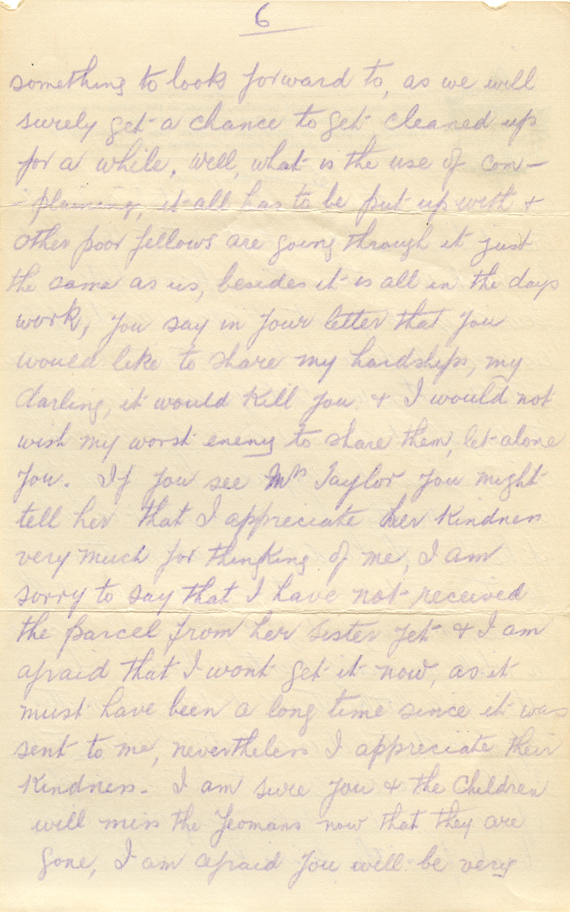 6
something to look forward to, as we will
surely get a chance to get cleaned up
for a while, well, what is the use of con-
plaining, it all has to be put up with &
other poor fellows are going through it just
the same as us, besides it is all in the days
work, you say in your letter that you
would like to share my hardships, my
darling, it would kill you & I would not
wish my worst enemy to share them, let alone
you. If you see Mrs Taylor you might
tell her that I appreciate her kindness
very much for thinking of me, I am
sorry to say that I have not received
the parcel from her sister yet & I am
afraid that I wont get it now, as it
must have been a long time since it was
sent to me, nevertheless I appreciate their
kindness. I am sure you & the children
will miss the Yeomans now that they are
gone, I am afraid you will be very